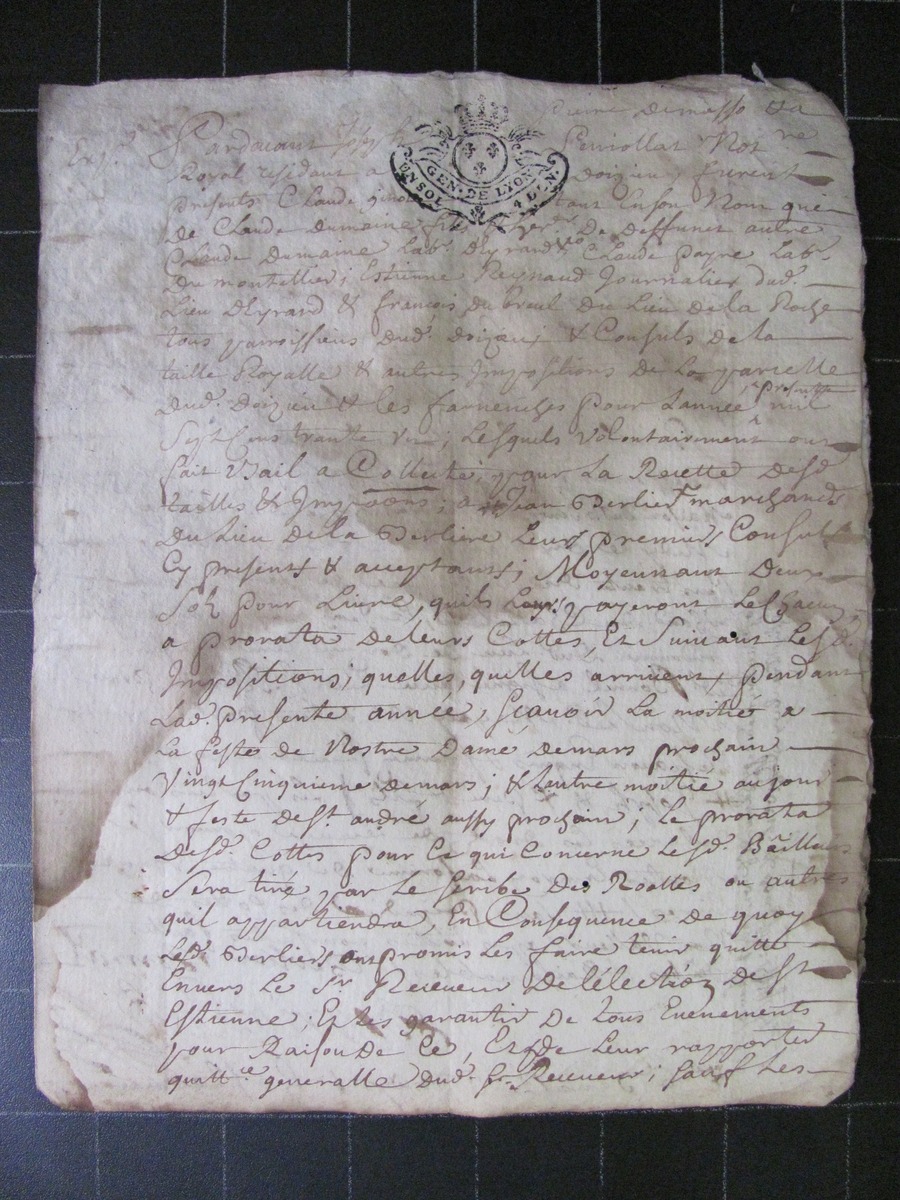 GEN·DE LYON
EN SOL 4 DEN·
Exp.é Pardevant
Peirollat Not re
Royal residant a Doizieu furent
presents Claude tant Enson Nom que
De Claude Dumaine fils De deffunct autre
Claude Dumaine Lab.r D'Eyrard Claude payre Lab.r
Du montellier; Estienne Reynaud Journalier dud.
Lieu D'Eyrard & francois Du breul Du Lieu dela Roche
tous parroissiens dud. doizieu & Consuls de la
taille Royalle & autres Impositions de La parcelle
dud. Doizieu & les farnenches pour Lannee presente mil
Sept Cens trante un; Lesquels volontairement ont
fait Bail a Collecte, pour La Recette desd.
tailles & Impoons; a Jean Berlier marchand
Du Lieu dela Berliere Leurs premier Consul
Cy presents & acceptants; Moyennant Deux
Solz pour Livre, quils Leurs payeront Le Chacun
a prorata deleurs Cottes, Et Suivant Lesd.
Impositions; quelles, quilles arrivent, pendant
Lad. presente année, Scavoir La moitié a
La feste de Nostre Dame demars prochain
Vingt Cinquieme demars; & Lautre moitié aujour
& feste de St. andré aussy prochain; Le prorata
Desd. Cottes pour Ce qui Concerne Lesd. Bailleurs
Sera tiré par Le Scribe Des Roolles ou autres
quil appartiendra, En Consequence De quoy
Led. Berliers ont promis Les faire tenir quitte
Envers Le Sr. Receveur De L'élection De St.
Estienne; Et Les garantir De tous Evenements
pour Raison De Ce, Et de Leur rapporter
quitt.ce generalle dud. Sr. Receveur; Sauf Les